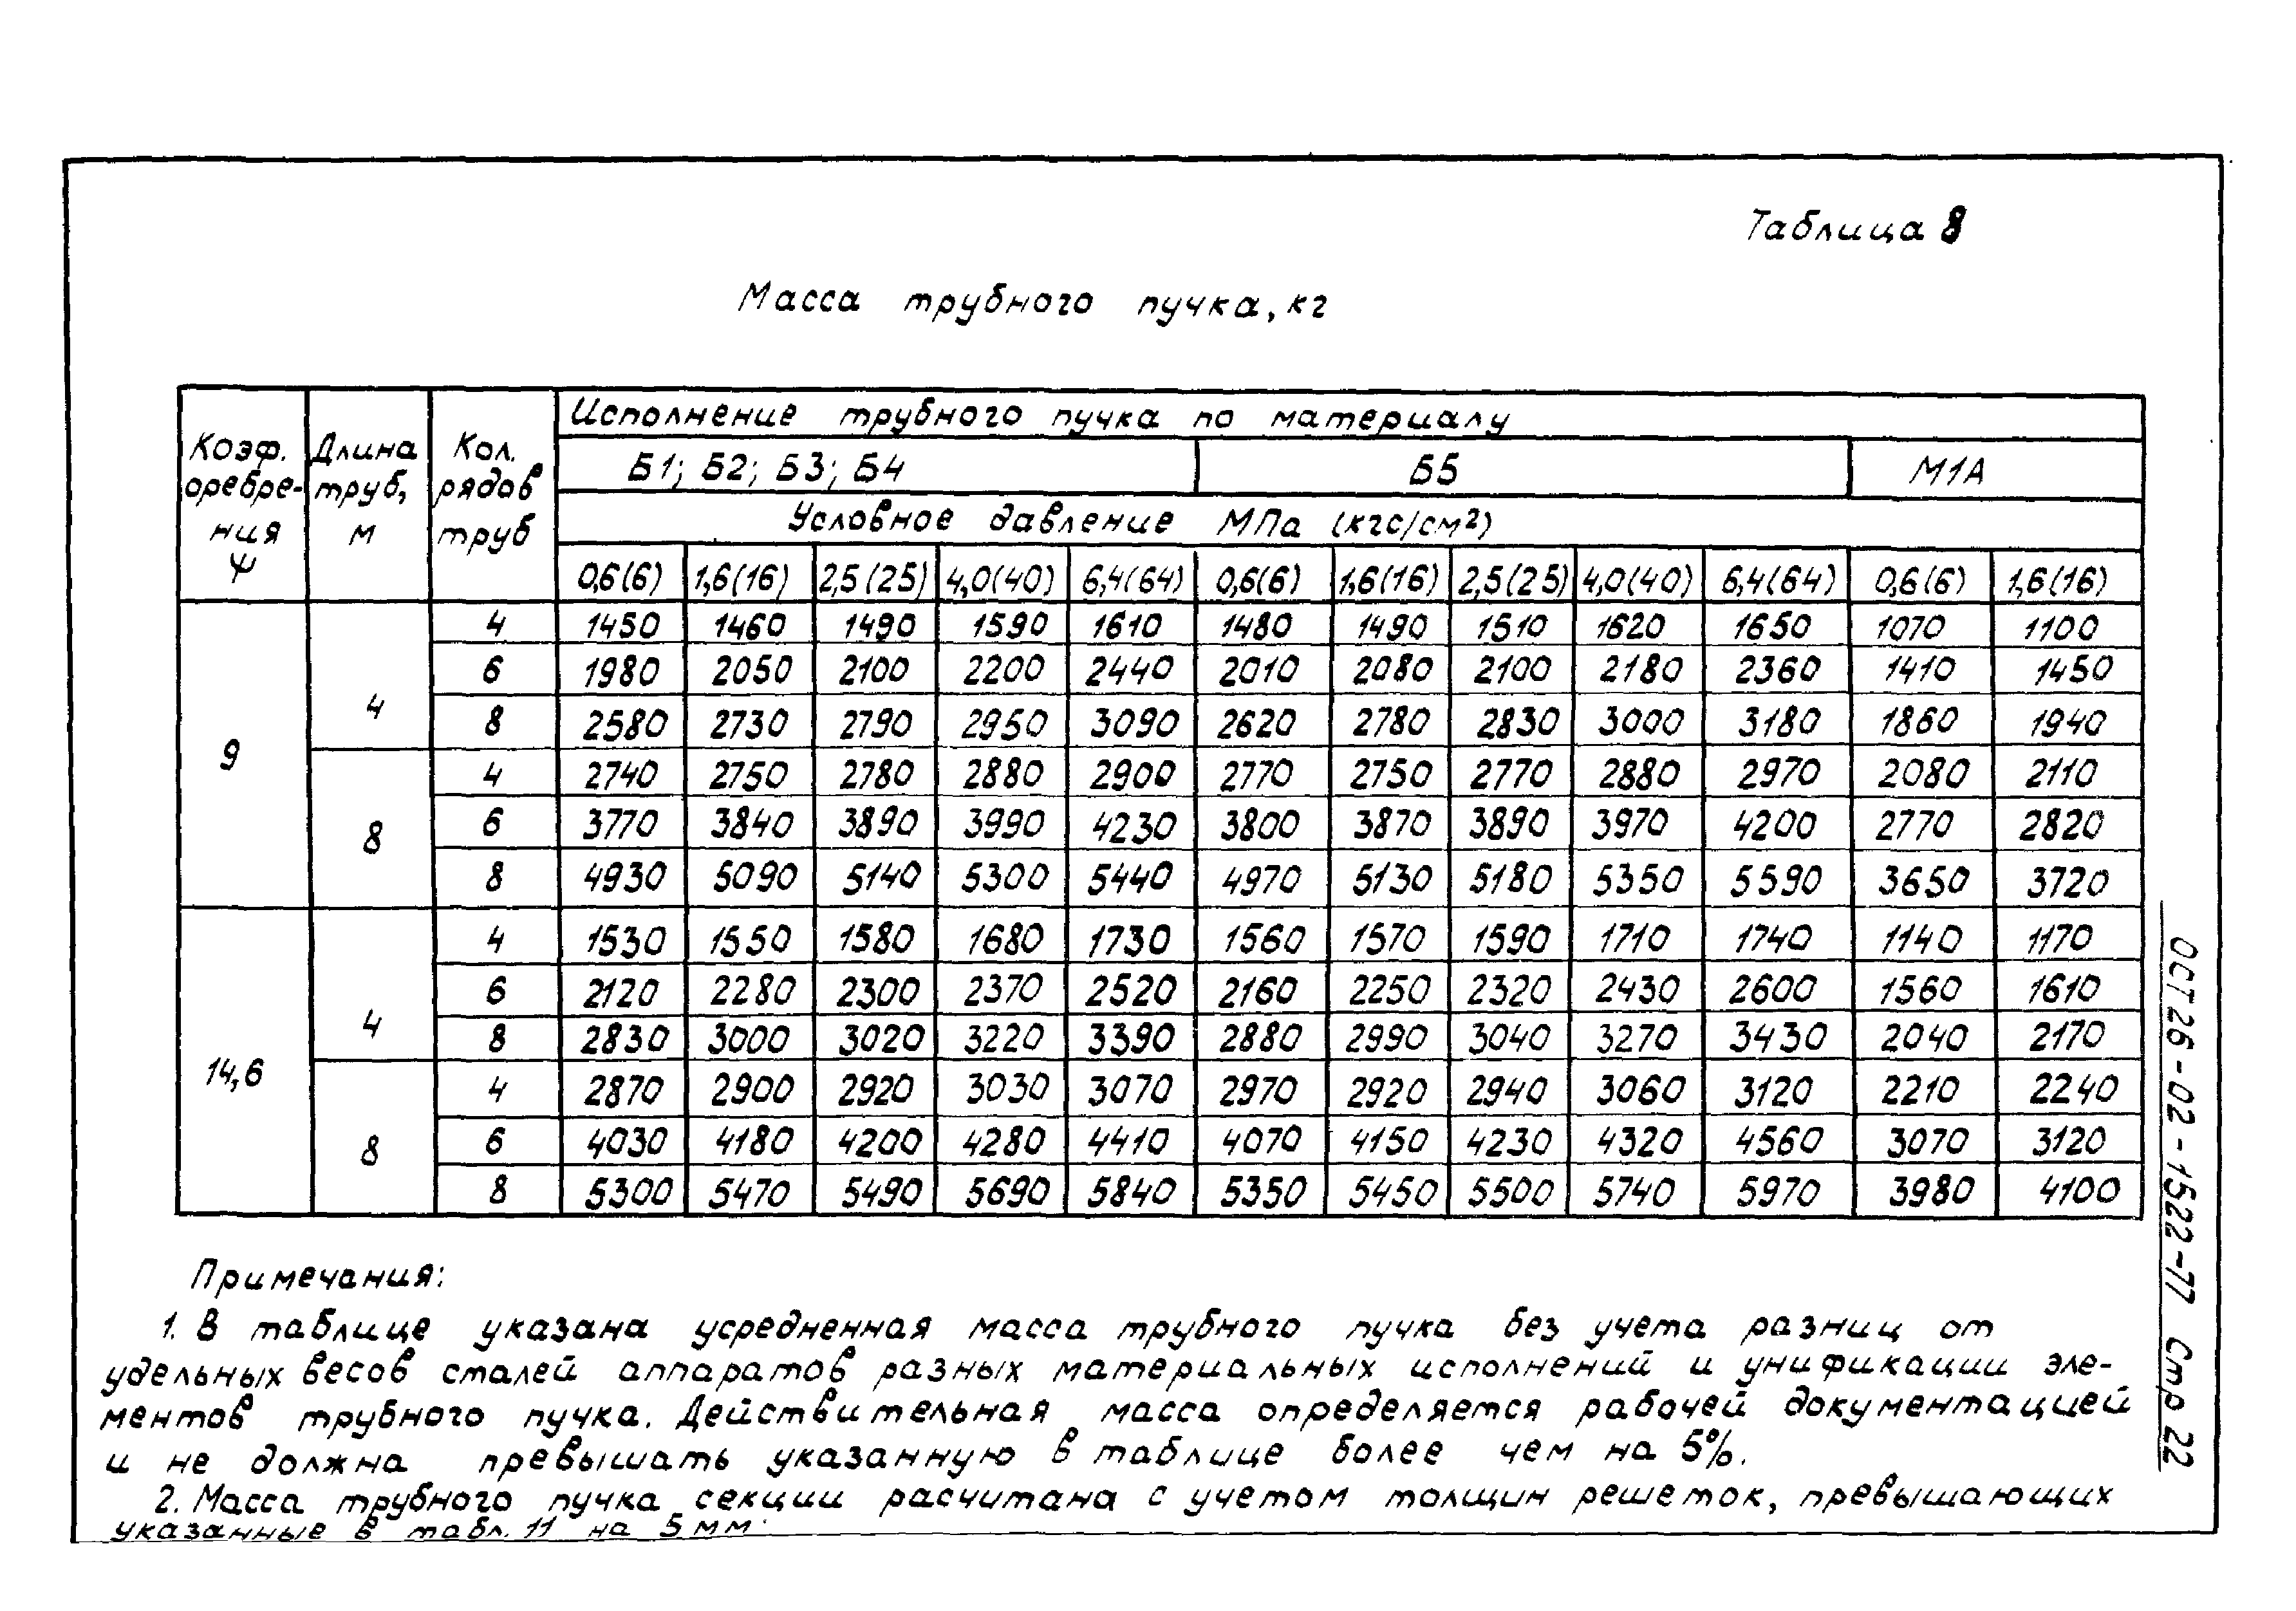 Таблица 8
Масса трубного пучка, кг
Коэф. оребре-ния ψ | Длина труб, м | Кол. рядов труб | Исполнение трубного пучка по материалу
Б1; Б2; Б3; Б4 | Б5 | М1А
Условное давление МПа (кгс/см²)
0,6(6) | 1,6(16) | 2,5(25) | 4,0(40) | 6,4(64) | 0,6(6) | 1,6(16) | 2,5(25) | 4,0(40) | 6,4(64) | 0,6(6) | 1,6(16)
9 | 4 | 4 | 1450 | 1460 | 1490 | 1590 | 1610 | 1480 | 1490 | 1510 | 1620 | 1650 | 1070 | 1100
6 | 1980 | 2050 | 2100 | 2200 | 2440 | 2010 | 2080 | 2100 | 2180 | 2360 | 1410 | 1450
8 | 2580 | 2730 | 2790 | 2950 | 3090 | 2620 | 2780 | 2830 | 3000 | 3180 | 1860 | 1940
8 | 4 | 2740 | 2750 | 2780 | 2880 | 2900 | 2770 | 2750 | 2770 | 2880 | 2970 | 2080 | 2110
6 | 3770 | 3840 | 3890 | 3990 | 4230 | 3800 | 3870 | 3890 | 3970 | 4200 | 2770 | 2820
8 | 4930 | 5090 | 5140 | 5300 | 5440 | 4970 | 5130 | 5180 | 5350 | 5590 | 3650 | 3720
14,6 | 4 | 4 | 1530 | 1550 | 1580 | 1680 | 1730 | 1560 | 1570 | 1590 | 1710 | 1740 | 1140 | 1170
6 | 2120 | 2280 | 2300 | 2370 | 2520 | 2160 | 2250 | 2320 | 2430 | 2600 | 1560 | 1610
8 | 2830 | 3000 | 3020 | 3220 | 3390 | 2880 | 2990 | 3040 | 3270 | 3430 | 2040 | 2170
8 | 4 | 2870 | 2900 | 2920 | 3030 | 3070 | 2970 | 2920 | 2940 | 3060 | 3120 | 2210 | 2240
6 | 4030 | 4180 | 4200 | 4280 | 4410 | 4070 | 4150 | 4230 | 4320 | 4560 | 3070 | 3120
8 | 5300 | 5470 | 5490 | 5690 | 5840 | 5350 | 5450 | 5500 | 5740 | 5970 | 3980 | 4100
Примечания:
1. В таблице указана усредненная масса трубного пучка без учета разниц от
удельных весов сталей аппаратов разных материальных исполнений и унификации эле-
ментов трубного пучка. Действительная масса определяется рабочей документацией
и не должна превышать указанную в таблице более чем на 5%.
2. Масса трубного пучка секции расчитана с учетом толщин решеток, превышающих
указанные в табл. 11 на 5 мм.
ОСТ 26-02-1522-77 Стр 22